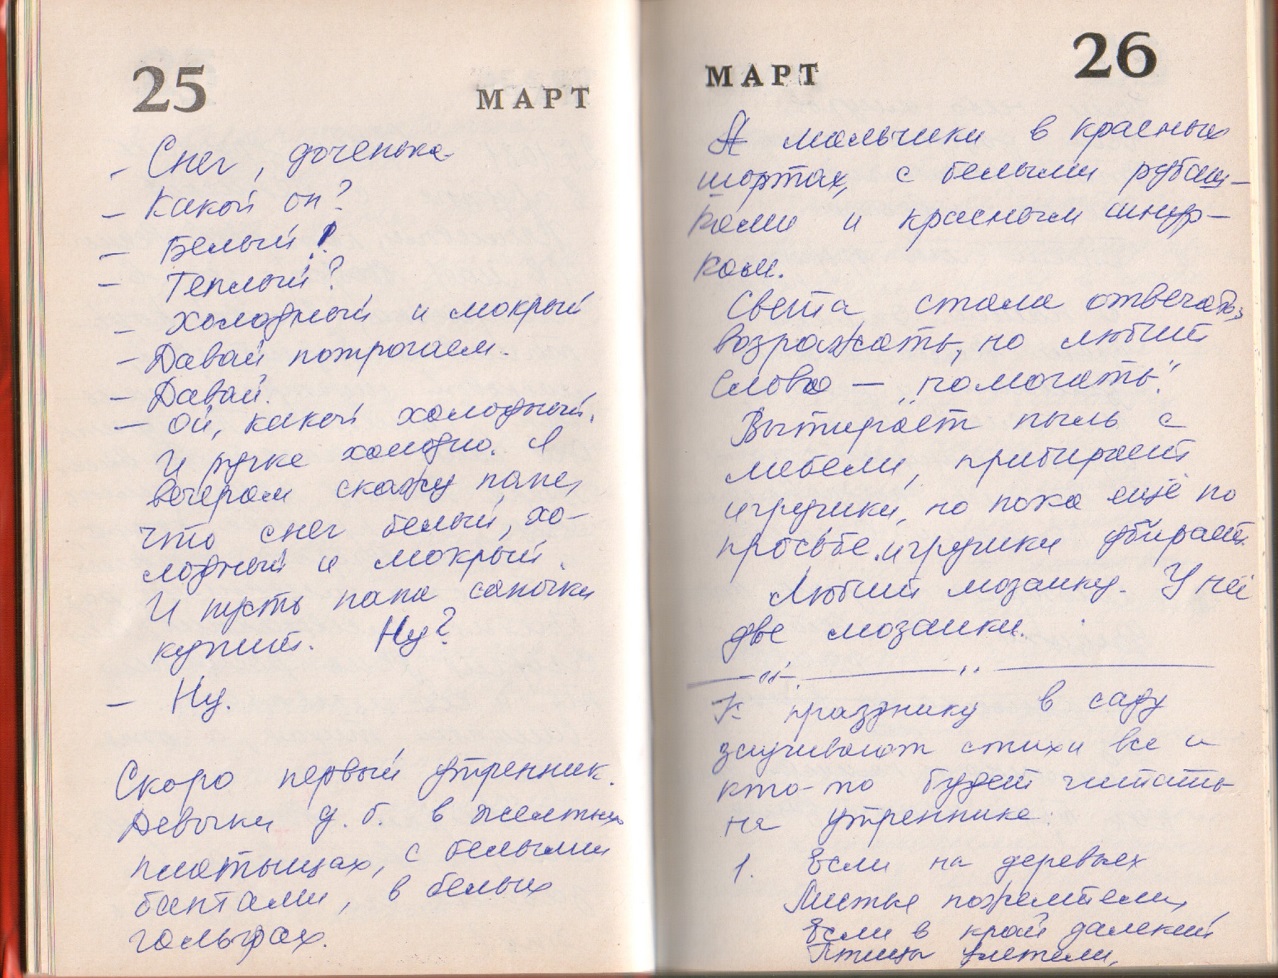 25 МАРТ
- Снег, доченька
- Какой он?
- Белый!
- Теплый?
- Холодный и мокрый
- Давай потрогаем.
- Давай.
- Ой, какой холодный.
И ручке холодно. Я
вечером скажу папе,
что снег белый, хо-
лодный и мокрый.
И пусть папа саночки
купит. Ну?
- Ну.
Скоро первый утренник.
Девочки д.б. в желтых
платьицах, с белыми
бантами, в белых
гольфах.
МАРТ 26
А мальчики в красных
шортах, с белыми рубаш-
ками и красным шнур-
ком.
Света стала отвечать,
возражать, но любит
слово — „помогать".
Вытирает пыль с
мебели, прибирает
игрушки, но пока ещё по
просьбе игрушки убирает.
Любит мозаику. У неё
две мозаики.
К празднику в саду
заучивают стихи все и
кто-то будет читать
на утреннике:
1. Если на деревьях
Листья пожелтели,
Если в край далекий
Птицы улетели,